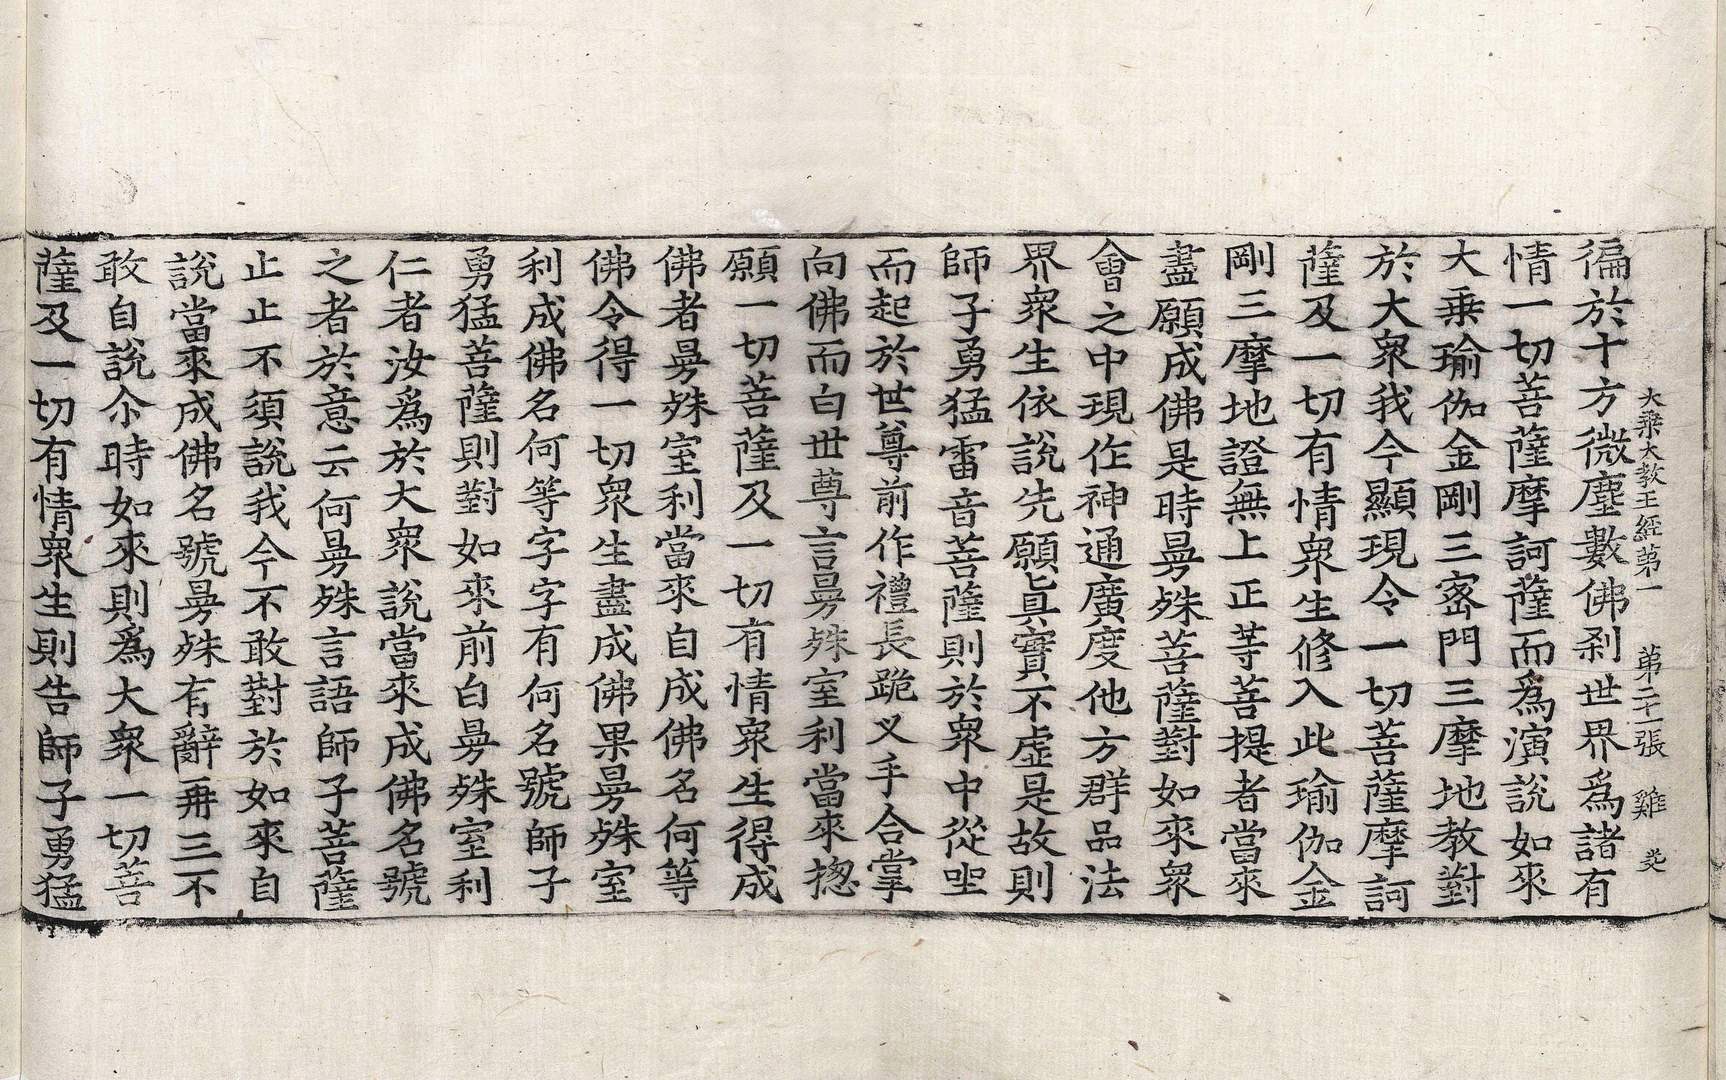 大乗大教王經第一　第二十一張　雞　炎
徧於十方微塵數佛刹世界爲諸有
情一切菩薩摩訶薩而爲演說如來
大乗瑜伽金剛三密門三摩地教對
於大衆我今顯現令一切菩薩摩訶
薩及一切有情衆生修入此瑜伽金
剛三摩地證無上正等菩提者當來
盡願成佛是時曼殊菩薩對如來衆
會之中現作神通廣度他方群品法
界衆生依說先願眞實不虛是故則
師子勇猛雷音菩薩則於衆中從坐
而起於世尊前作禮長跪叉手合掌
向佛而白世尊言曼殊室利當來揔
願一切菩薩及一切有情衆生得成
佛者曼殊室利當來自成佛名何等
佛令得一切衆生盡成佛果曼殊室
利成佛名何等字字有何名號師子
勇猛菩薩則對如來前白曼殊室利
仁者汝爲於大衆說當來成佛名號
之者於意云何曼殊言語師子菩薩
止止不須說我今不敢對於如來自
說當來成佛名號曼殊有辭再三不
敢自說尒時如來則爲大衆一切菩
薩及一切有情衆生則告師子勇猛